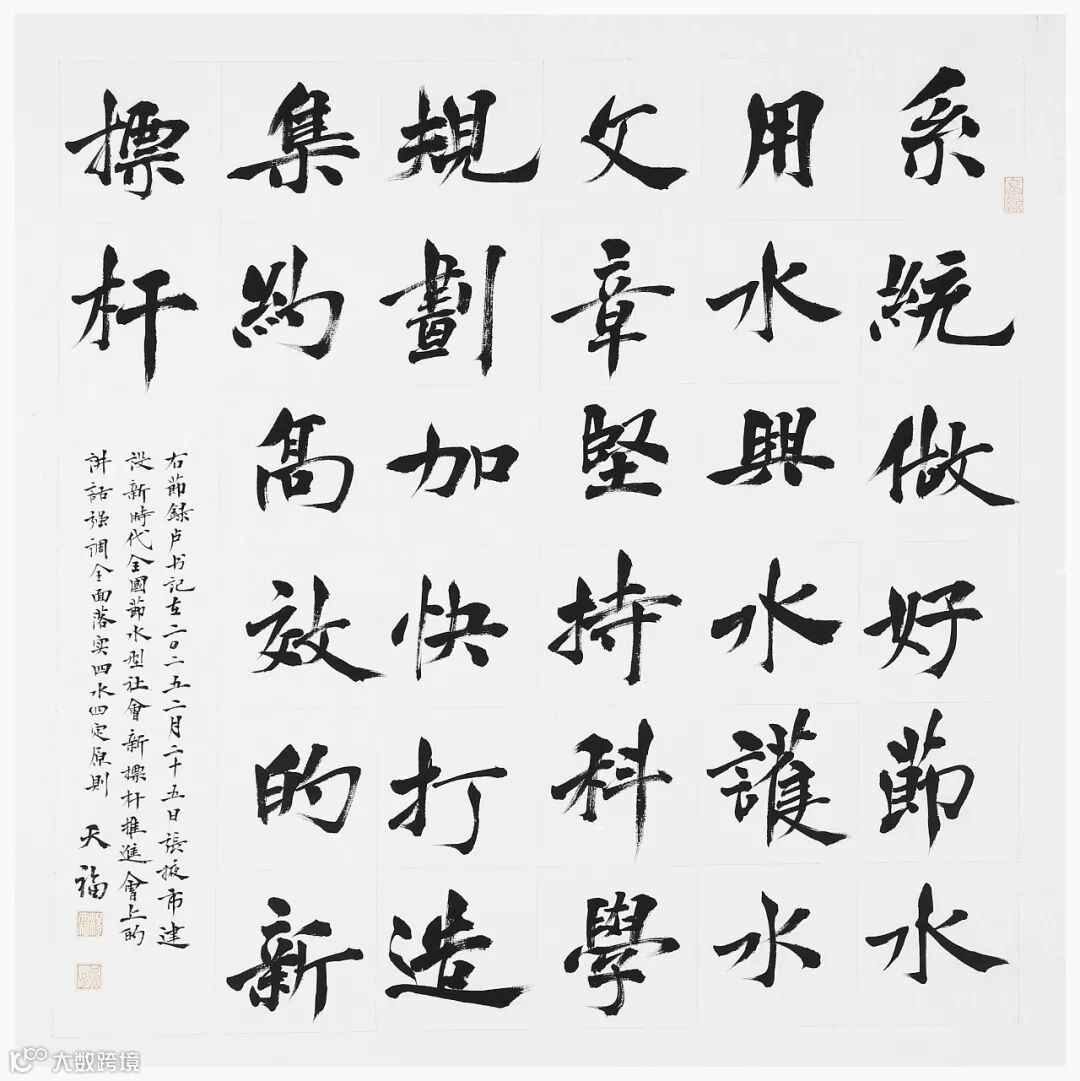 系統做好節水
用水興水護水
文章堅持科學
規劃加快打造
集約高效的新
標杆
右節録卢书記在二〇二五二月二十五日張掖市建
设新時代全國節水型社會新標杆推進會上的
讲話强調全面落实四水四定原則
天福
大数跨境